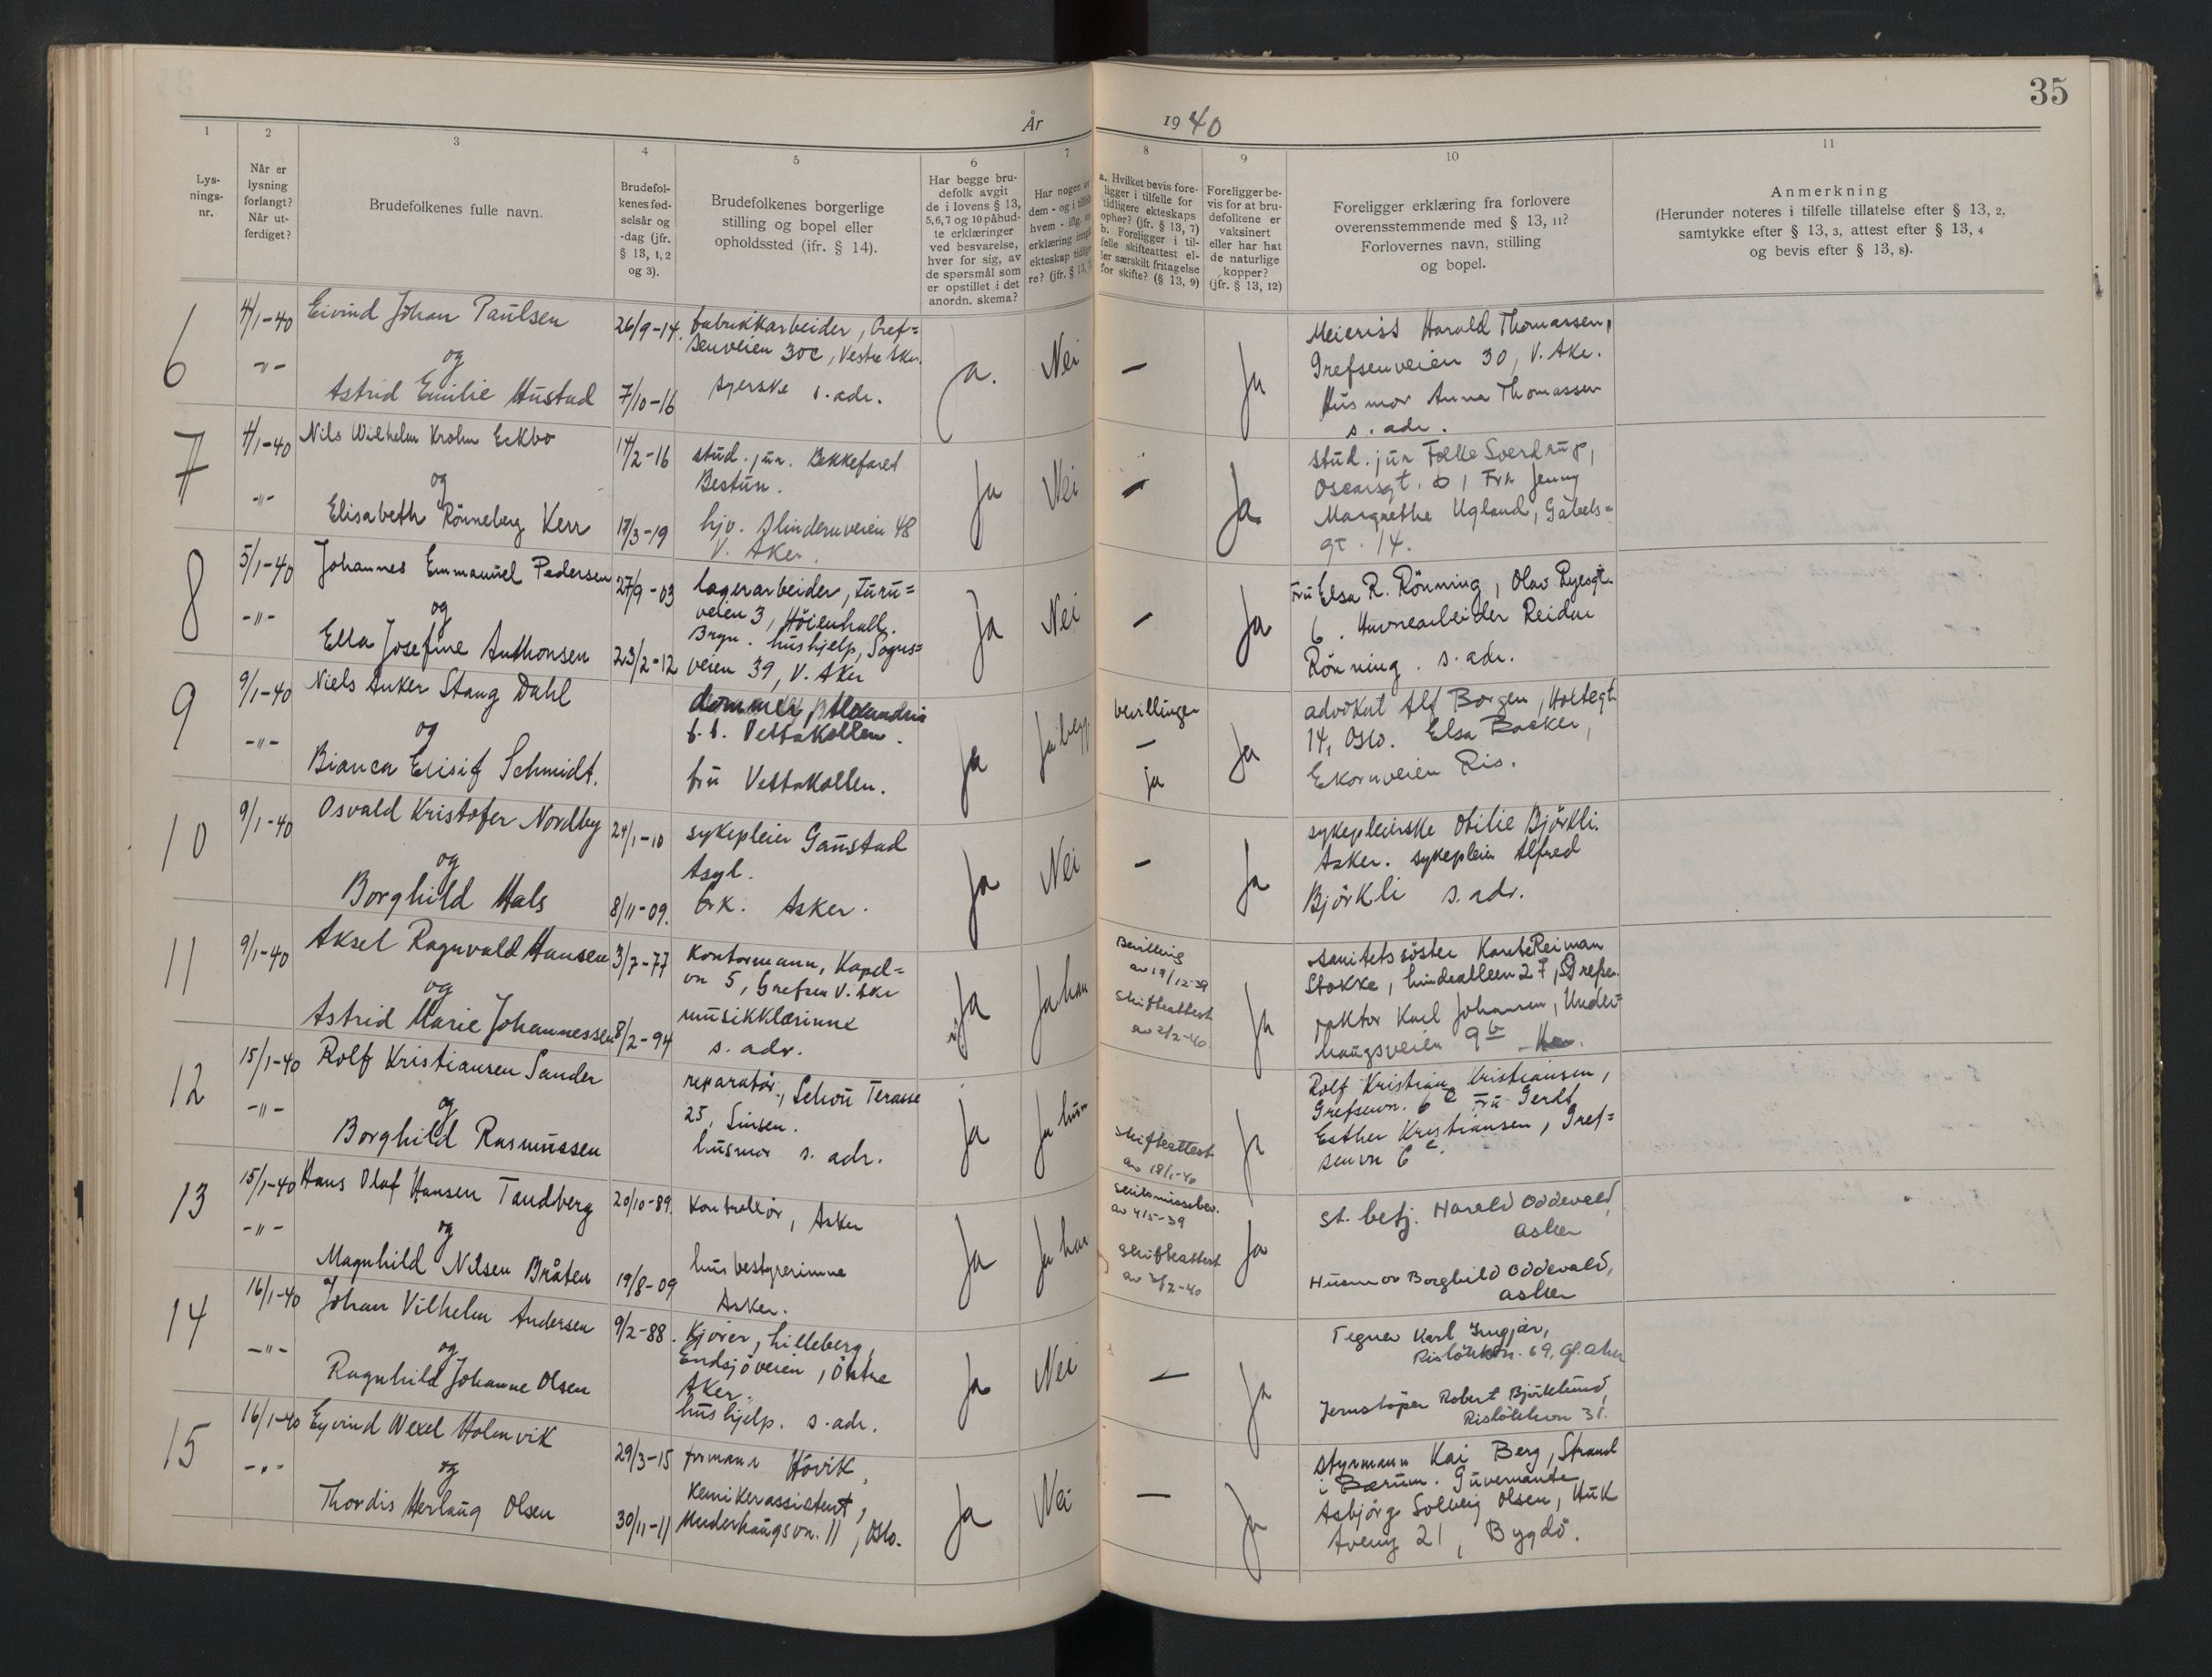 35
År 1940
1
Lys-
nings-
nr.
2
Når er
lysning
forlangt?
Når ut-
ferdiget?
3
Brudefolkenes fulle navn.
4
Brudefol-
kenes fød-
selsår og
-dag (jfr.
§ 13, 1, 2
og 3).
5
Brudefolkenes borgerlige
stilling og bopel eller
opholdssted (ifr. § 14).
6
Har begge bru-
defolk avgit
de i lovens § 13,
5, 6, 7 og 10 påbud-
te erklæringer
ved besvarelse,
hver for sig, av
de spørsmål som
er opstillet i det
anordn. skema?
7
Har nogen av
dem - og i
hvem - ifig.
erklæring
ekteskap tidlige-
re? (jfr. § 13,
8
a. Hvilket bevis fore-
ligger i tilfelle for
tidligere ekteskaps
ophør? (jfr. § 13, 7)
b. Foreligger i til-
felle skifteattest el-
ler særskilt fritagelse
for skifte? (§ 13, 9)
9
Foreligger be-
vis for at bru-
defolkene er
vaksinert
eller har hat
de naturlige
kopper?
(jfr. § 13, 12)
10
Foreligger erklæring fra forlovere
overensstemmende med § 13, 11?
Forlovernes navn, stilling
og bopel.
11
Anmerkning
(Herunder noteres i tilfelle tillatelse efter § 13, 2,
samtykke efter § 13, 3, attest efter § 13, 4
og bevis efter § 13, 8).
6
4/1-40
-"-
Eivind Johan Paulsen
og
Astrid Emilie Hustad
26/9-14.
7/10-16
fabrikkarbeider, Gref=
senveien 30c, Vestre Aker.
syerske s. adr.
Ja.
Nei
—
Ja
Meierist Harald Thomassen,
Grefsenveien 30, V. Aker.
Husmor Anna Thomassen
s. adr.
7
4/1-40
-"-
Nils Wilhelm Krohn Eckbo
og
Elisabeth Rönneberg Kerr
14/2-16
17/3-19
stud. jur. Bekkefaret
Bestun.
hjv. Blindernveien 48
V. Aker.
Ja
Nei
—
Ja
stud. jur Sverdrup,
Oscarsgt. Fru Jenny
Margrethe Ugland, Gabels=
gt. 14.
8
5/1-40
-"-
Johannes Emmanuel Pedersen
og
Ella Josefine Anthonsen
27/9-03
23/2-12
lagerarbeider, Furu=
veien 3, Höienhall.
Bryn. hushjelp, Sogns=
veien 39, V. Aker
Ja
Nei
—
Ja
Fru Elsa R. Rönning, Olav Ryesgt.
6. Havnearbeider Reidar
Rönning. s. adr.
9
9/1-40
-"-
Niels Anker Stang Dahl
og
Bianca Elisif Schmidt.
dommer, Alexandria
f. t. Vettakollen.
fru Vettakollen.
Ja
Ja begge
bevillinger
—
ja
Ja
advokat Alf Borgen, Holtegt.
14, Oslo. Elsa Backer,
Ekornveien Ris.
10
9/1-40
Osvald Kristofer Nordby
og
Borghild Hals
24/1-10
8/11-09.
sykepleier Gaustad
Asyl.
frk. Asker.
Ja
Nei
—
Ja
sykepleierske Otilie Björkli.
Asker. sykepleier Alfred
Björkli s. adr.
11
9/1-40
Aksel Ragnvald Hansen
og
Astrid Marie Johannessen
3/7-77
8/2-94
Kontormann, Kapel=
vn 5, Grefsen V. Aker
musikklærinne
s. adr.
Ja
Ja han
Bevilling
av 19/12-39
Skifteattest
av 2/2-40.
Ja
sanitetssöster Kante Reiman
Stokke, Lindealleen 27, Grefsen
Karl Johansen, Under=
haugsveien 9b
12
15/1-40
-"-
Rolf Kristiansen Sander
og
Borghild Rasmussen
reparatör, Schou Terasse
25, Sinsen.
husmor s. adr.
Ja
Ja hun
Skifteattest
av 18/1-40
Ja
Rolf Kristian Kristiansen,
Grefsenvn. 6c Fru Gerdt
Esther Kristiansen, Gref=
senvn 6c.
13
15/1-40
-"-
Hans Olaf Hansen Tandberg
og
Magnhild Nilsen Bråten
20/10-89.
19/8-09
Kontrollör, Asker
husbestyrerinne
Asker.
Ja
Ja han
Skilsmissebev.
av 4/5-39
Skifteattest
av 3/2-40
Ja
St. betj. Harald Oddevald,
Asker
Husmor Borghild Oddevald,
Asker
14
16/1-40
-"-
Johan Vilhelm Andersen
og
Ragnhild Johanne Olsen
9/2-88.
Kjörer, Lilleberg,
Ensjöveien, Östre
Aker.
hushjelp. s. adr.
Ja
Nei
—
Ja
Tegner Karl Ingjar,
Rislökkvn. 69, Ø. Aker
Jernstöper Robert Björklund,
Rislökkvn 31.
15
16/1-40
-"-
Eyvind Wexel Holmvik
og
Thordis Herlaug Olsen
29/3-15
30/11-11
formann Hövik,
Kemikerassistent,
Underhaugsvn. 11, Oslo.
Ja
Nei
—
Ja
styrmann Kai Berg, Strand
i Bærum. Guvernante
Asbjörg Solveig Olsen, Huk
Aveny 21, Bygdö.